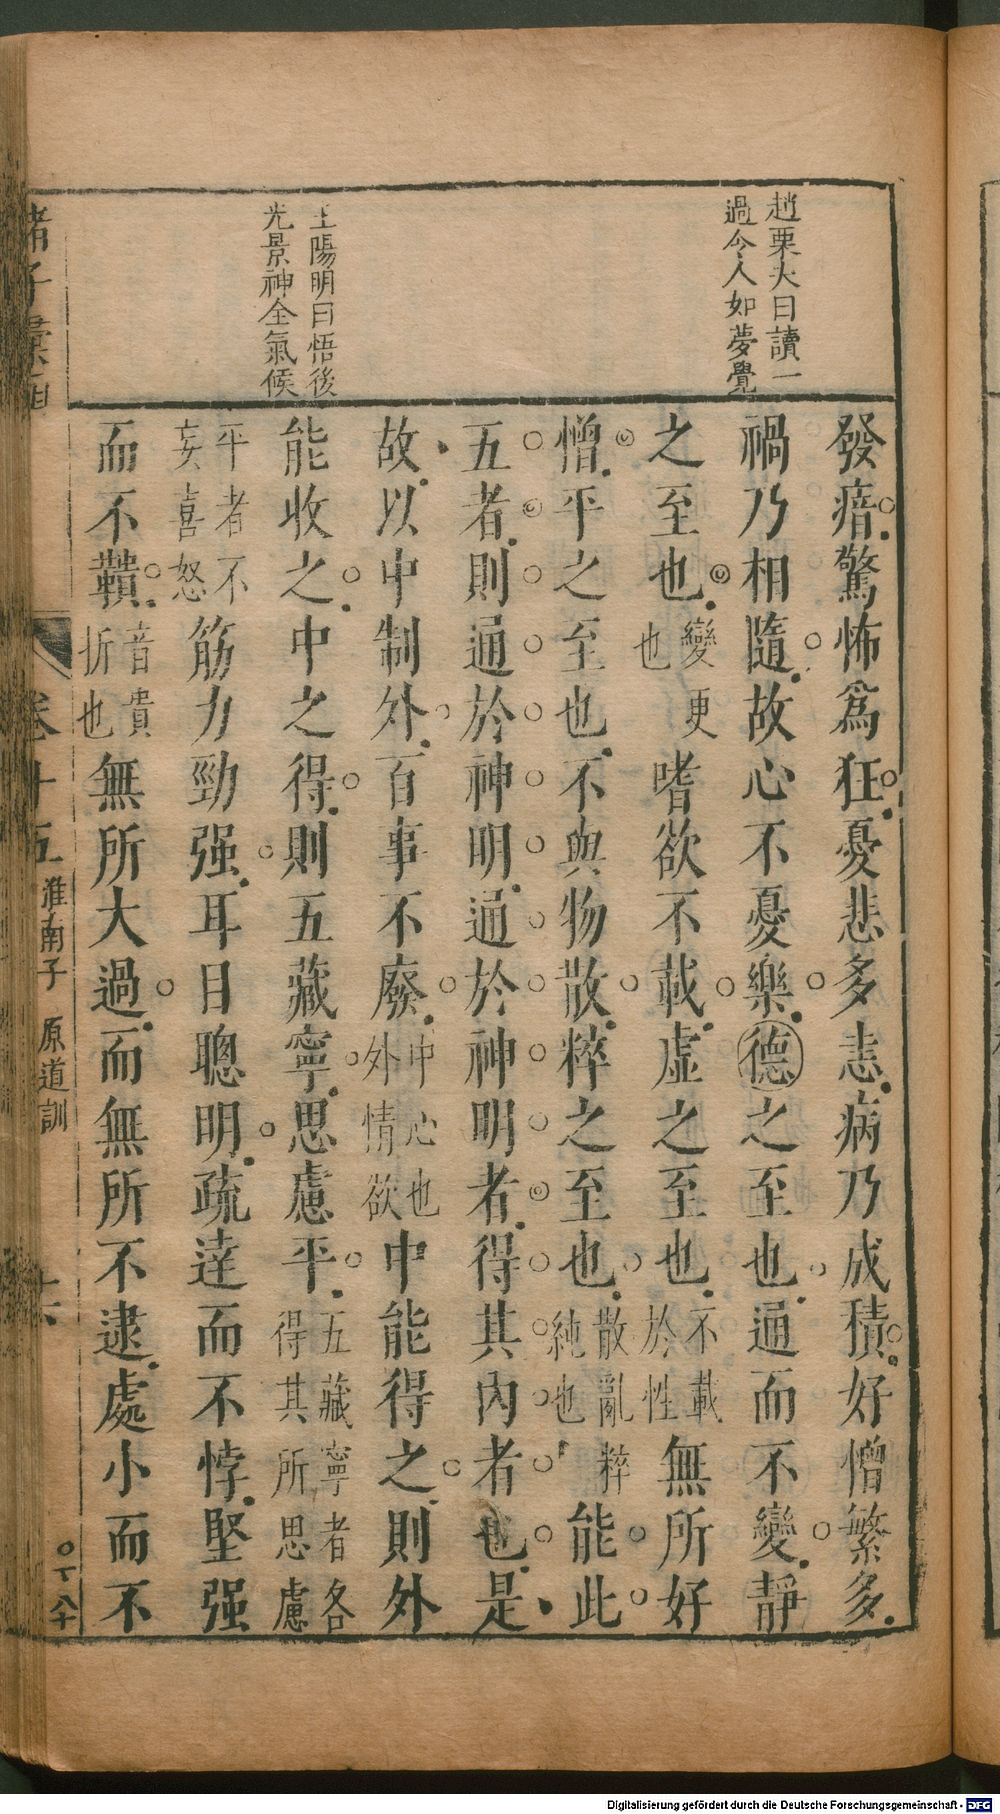 趙栗夫曰讀一
過今人如夢覺
王陽明曰悟後
光景神全氣候
發瘖驚怖爲狂憂悲多恚病乃成積好憎繁多
禍乃相隨故心不憂樂德之至也通而不變靜
之至也變更也嗜欲不載虛之至也不載於性無所好
憎平之至也不與物散粹之至也散亂粹純也能此
五者則通於神明通於神明者得其內者也是
故以中制外百事不廢中心也外情欲中能得之則外
能收之中之得則五藏寧思慮平五藏寧者各得其所思慮
平者不妄喜怒筋力勁强耳目聰明疏達而不悖堅强
而不鞼音貴折也無所大過而無所不逮處小而不
諸子彙函
卷十五 淮南子 原道訓
十六